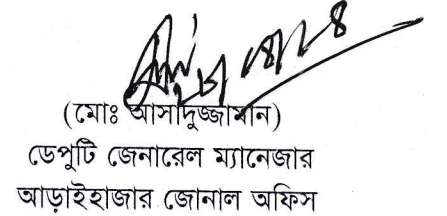 (মোঃ আসাদুজ্জামান)
ডেপুটি জেনারেল ম্যানেজার
আড়াইহাজার জোনাল অফিস